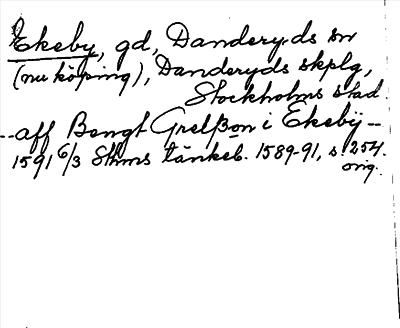 Ekeby, gd, Danderyds sn
(nu köping), Danderyds skplg,
Stockholms stad.
-- aff Bengt Grelßon i Ekebÿ --
1591 6/3 Sthms tänkeb. 1589-91, s. 254.
orig.